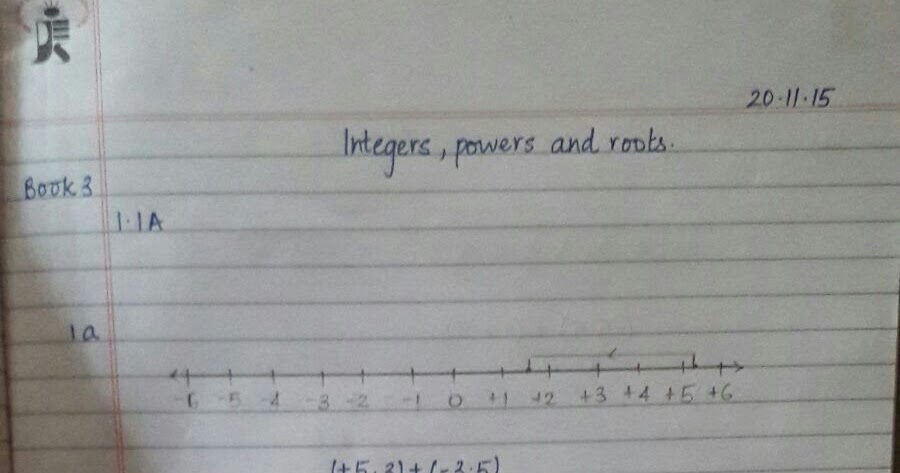 20.11.15
Integers, powers and roots.
Book 3
1.1A
1a
-6 -5 -4 -3 -2 -1 0 +1 +2 +3 +4 +5 +6
(+5.2)+(-3.5)